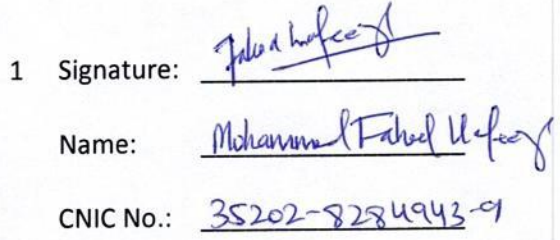 1 Signature: Fahad Hafeez
Name: Mohammad Fahad Hafeez
CNIC No.: 35202-8284943-9